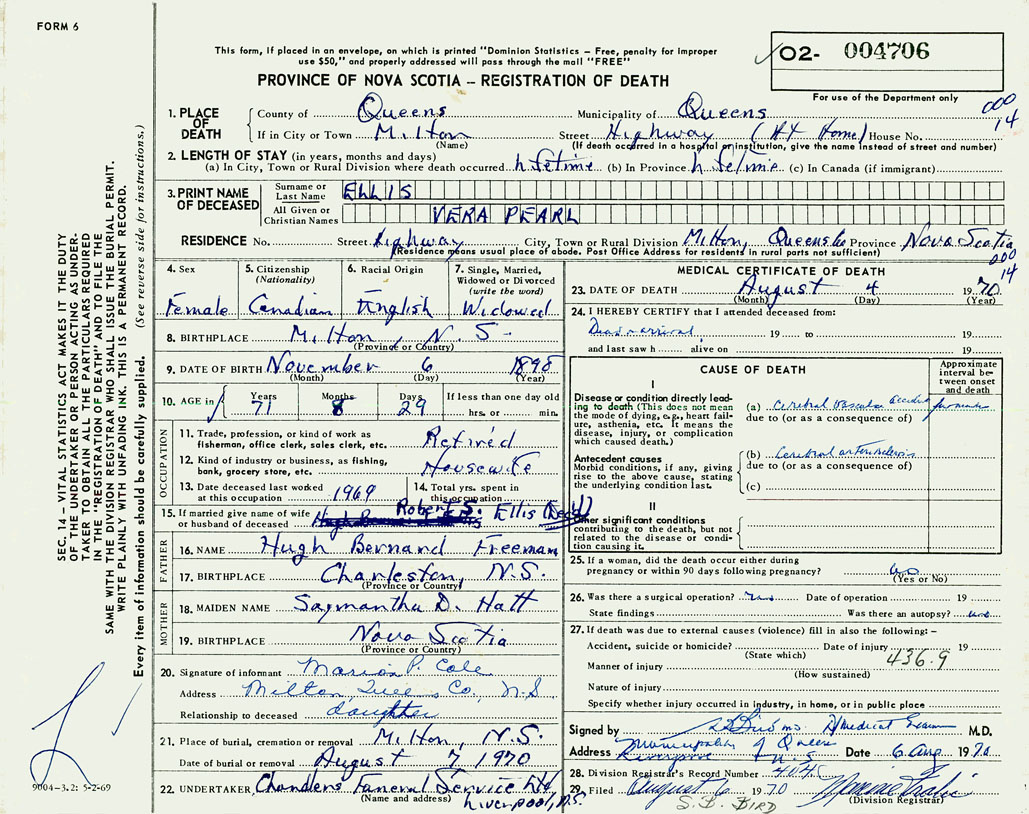 FORM 6
This form, if placed in an envelope, on which is printed "Dominion Statistics – Free, penalty for improper
use $50," and properly addressed will pass through the mail "FREE"
PROVINCE OF NOVA SCOTIA – REGISTRATION OF DEATH
02- 004706
For use of the Department only
000
14
1. PLACE OF DEATH
County of Queens Municipality of Queens
If in City or Town Milton Street Highway (At Home) House No.
(Name) (If death occurred in a hospital or institution, give the name instead of street and number)
2. LENGTH OF STAY (in years, months and days)
(a) In City, Town or Rural Division where death occurred lifetime (b) In Province lifetime (c) In Canada (if immigrant)
3. PRINT NAME OF DECEASED
Surname or Last Name ELLIS
All Given or Christian Names VERA PEARL
RESIDENCE No. Street Highway City, Town or Rural Division Milton, Queens Co Province Nova Scotia
(Residence means usual place of abode. Post Office Address for residents in rural parts not sufficient)
000
14
4. Sex Female
5. Citizenship (Nationality) Canadian
6. Racial Origin English
7. Single, Married, Widowed or Divorced (write the word) Widowed
8. BIRTHPLACE Milton, N.S.
(Province or Country)
9. DATE OF BIRTH November 6 1898
(Month) (Day) (Year)
10. AGE in Years 71 Months 8 Days 29 If less than one day old
hrs. or min.
OCCUPATION
11. Trade, profession, or kind of work as
fisherman, office clerk, sales clerk, etc. Retired
12. Kind of industry or business, as fishing,
bank, grocery store, etc. Housewife
13. Date deceased last worked
at this occupation 1969
14. Total yrs. spent in
this occupation
15. If married give name of wife
or husband of deceased Robert S. Ellis (Dec'd)
FATHER
16. NAME Hugh Bernard Freeman
17. BIRTHPLACE Charleston, N.S.
(Province or Country)
MOTHER
18. MAIDEN NAME Saymantha D. Hatt
19. BIRTHPLACE Nova Scotia
(Province or Country)
20. Signature of informant Marion P. Cole
Address Milton, Queens Co, N.S
Relationship to deceased daughter
21. Place of burial, cremation or removal Milton, N.S.
Date of burial or removal August 7, 1970
22. UNDERTAKER Chandlers Funeral Service Ltd,
(Name and address) Liverpool, N.S.
MEDICAL CERTIFICATE OF DEATH
23. DATE OF DEATH August 4 1970
(Month) (Day) (Year)
24. I HEREBY CERTIFY that I attended deceased from:
Dead on arrival 19 to 19
and last saw h alive on 19
CAUSE OF DEATH
Approximate interval between onset and death
I
Disease or condition directly lead-
ing to death (This does not mean
the mode of dying, e.g., heart fail-
ure, asthenia, etc. It means the
disease, injury, or complication
which caused death.)
(a) Cerebral Vascular Accident
due to (or as a consequence of)
Antecedent causes
Morbid conditions, if any, giving
rise to the above cause, stating
the underlying condition last.
(b) Cerebral arteriosclerosis
due to (or as a consequence of)
(c)
II
Other significant conditions
contributing to the death, but not
related to the disease or condi-
tion causing it.
25. If a woman, did the death occur either during
pregnancy or within 90 days following pregnancy? no
(Yes or No)
26. Was there a surgical operation? no Date of operation 19
State findings Was there an autopsy? no
27. If death was due to external causes (violence) fill in also the following: –
Accident, suicide or homicide? Date of injury 19
(State which) 436.9
Manner of injury
(How sustained)
Nature of injury
Specify whether injury occurred in industry, in home, or in public place
Signed by Medical Exam M.D.
Address Municipality of Queens
Liverpool N.S Date 6 Aug 1970
28. Division Registrar's Record Number 4045
29. Filed August 6 1970
(Division Registrar)
S.B. BIRD
SEC. 14 – VITAL STATISTICS ACT MAKES IT THE DUTY
OF THE UNDERTAKER OR PERSON ACTING AS UNDER-
TAKER TO OBTAIN ALL THE PARTICULARS REQUIRED
IN THE "REGISTRATION OF DEATH" AND TO FILE THE
SAME WITH THE DIVISION REGISTRAR WHO SHALL ISSUE THE BURIAL PERMIT.
WRITE PLAINLY WITH UNFADING INK. THIS IS A PERMANENT RECORD.
Every item of information should be carefully supplied. (See reverse side for instructions.)
9004-3.2: 5-2-69